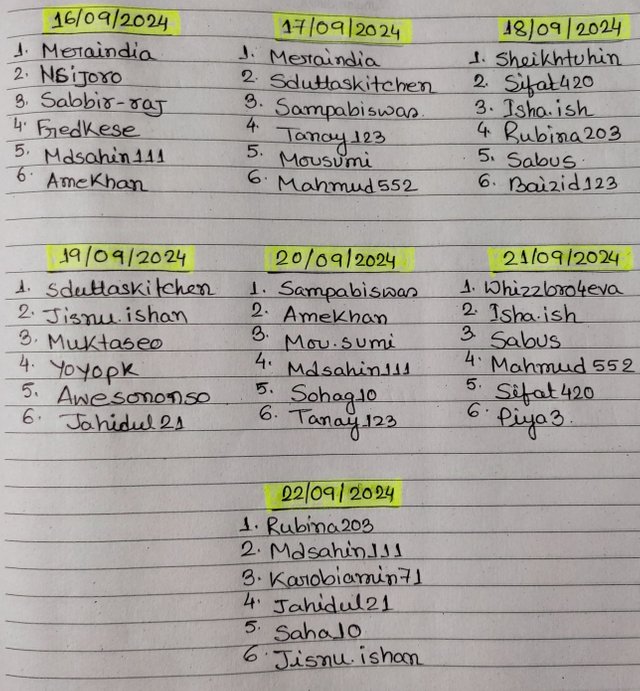 16/09/2024
1. Meraindia
2. Nsijoro
3. Sabbir-raj
4. Fredkese
5. Mdsahin111
6. Amekhan
17/09/2024
1. Meraindia
2. Sduttaskitchen
3. Sampabiswas
4. Tanay123
5. Mousumi
6. Mahmud552
18/09/2024
1. Sheikhtuhin
2. Sifat420
3. Isha.ish
4. Rubina203
5. Sabus
6. Baizid123
19/09/2024
1. Sduttaskitchen
2. Jisnu.ishan
3. Muktaseo
4. Yoyopk
5. Awesononso
6. Jahidul21
20/09/2024
1. Sampabiswas
2. Amekhan
3. Mou.sumi
4. Mdsahin111
5. Sohag10
6. Tanay123
21/09/2024
1. Whizzbro4eva
2. Isha.ish
3. Sabus
4. Mahmud552
5. Sifat420
6. Piya3.
22/09/2024
1. Rubina203
2. Mdsahin111
3. Karobiamin71
4. Jahidul21
5. Saha10
6. Jisnu.ishan